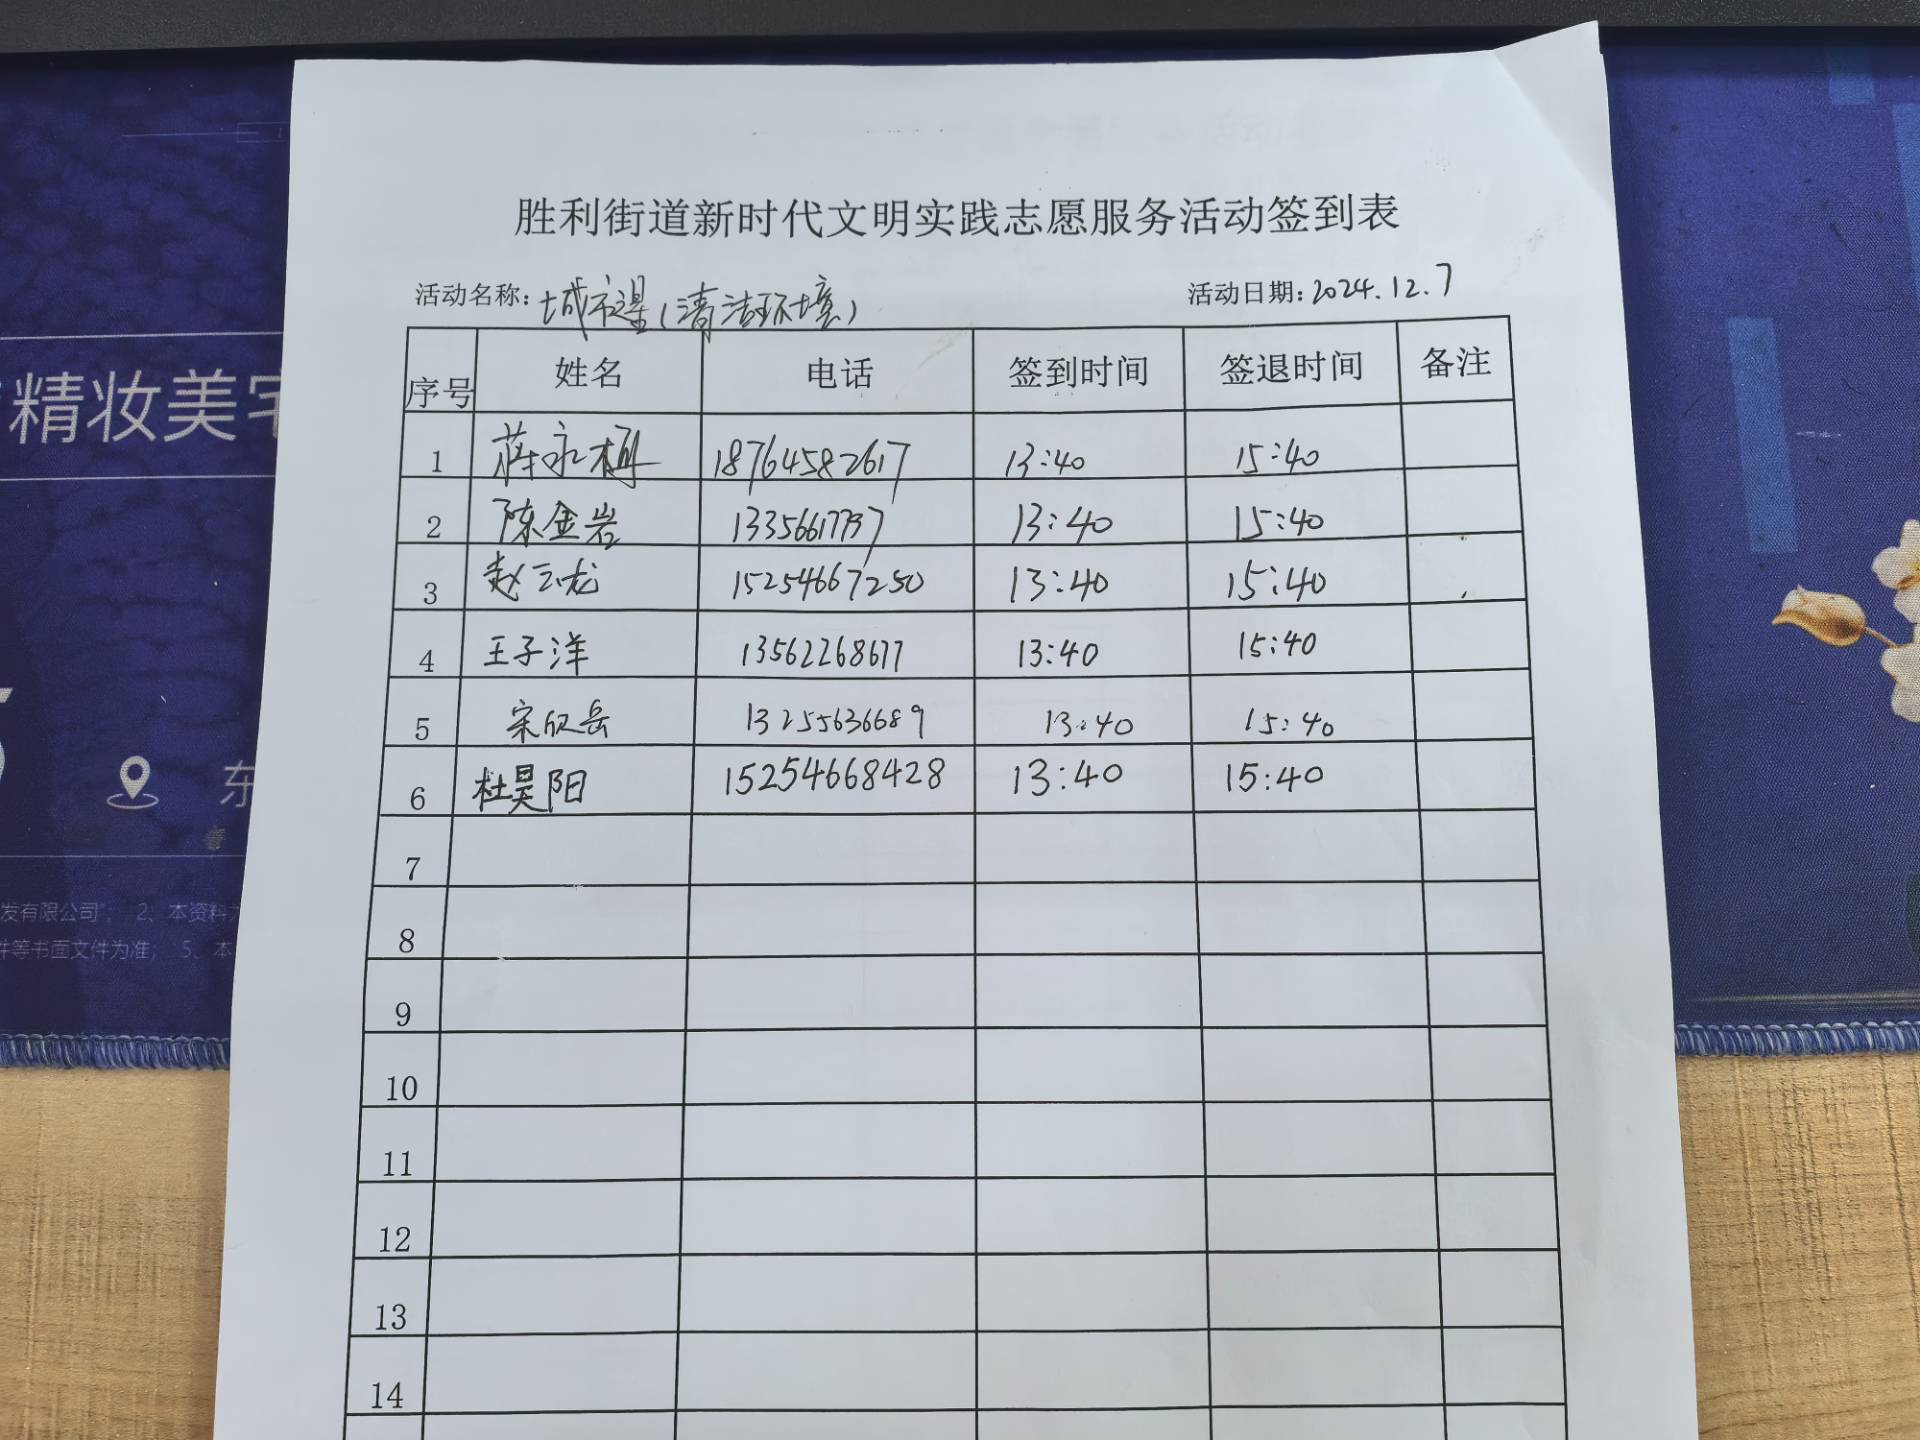 胜利街道新时代文明实践志愿服务活动签到表
活动名称: 城市之星(清洁环境) 活动日期: 2024.12.7
序号 姓名 电话 签到时间 签退时间 备注
1 蒋永 18764582617 13:40 15:40
2 陈金岩 13:40 15:40
3 赵云龙 15254667250 13:40 15:40
4 王子洋 13562268677 13:40 15:40
5 宋欣岳 13255636689 13:40 15:40
6 杜昊阳 15254668428 13:40 15:40
7
8
9
10
11
12
13
14
精妆美宅
东
发有限公司"; 2、本资料
件等书面文件为准; 5、本